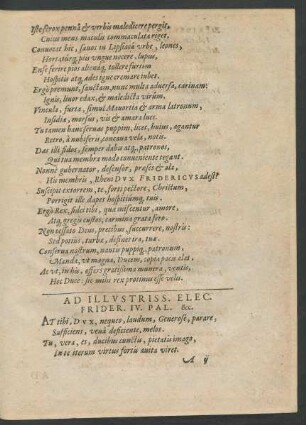 Iste ferox pennâ & verbis maledicere pergit,
Cuius mens maculis commaculata riget.
Conuocat hic, sanos in Lipsicâ vrbe, leones,
Hortaturq́, pio vngue nocere, lupus,
Ense ferire pios alienâq́, tollere sursum
Hostitio atq́, ædes igne cremare iubet.
Ergò premunt, sanctam, nunc multa aduersa, carinam:
Ignis, liuor edax, & maledicta virûm.
Vincula, furta, simul Mauortia & arma latronum,
Insidiæ, morsus, vis & amara lues.
Tu tamen hanc seruas puppim, licet, huius, agantur
Retro, à nubiferis, concaua vela, notis.
Das illi fidos, semper dabis atq́, patronos,
Qui tua membra modo conueniente tegant.
Nonnè gubernator, defensor, præses & ala,
His membris, Rheni DVX FRIDERICVS adest?
Suscipit extorrem, te, forti pectore, Christum,
Porrigit ille dapes hospitiumq́, tuis.
Ergò Rex, fidei tibi, qua insistentur, amore,
Atq́, gregis custos, carmina grata fero.
Non cessato Deus, precibus, succurrere, nostris:
Sed potius, turba, desinet ira, tua.
Conserua nostrum, nautis puppiq́, patronum,
Munda, vt magna, Ducem, cœpta pœcæ clat.
At vt, in his, assers gratissima munera, ventis,
Hoc Duce: sic nobis rex protinus esse velis.
AD ILLVSTRISS. ELEC.
FRIDER. IV. PAL. &c.
AT tibi, DVX, nequeo, laudum, Generose, parare,
Sufficiens, venâ deficiente, melos.
Tu, vera, es, ducibus cunctis, pietatis imago,
In te iterum virtus fortis auita viret.
A ij